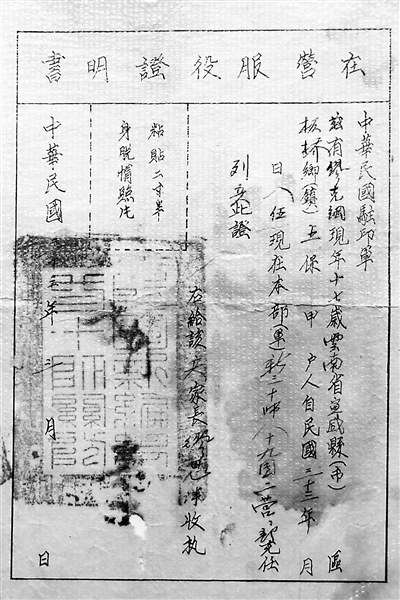 在營服役證明書
中華民國駐印軍
茲有繆克調現年十七歲雲南省宣威縣(市) 區
板橋鄉(鎮)五保 甲 戶人自民國三十三年 月
日入伍現在本部(軍)新三十師八十九團二營部充任
列兵此證
右給該兵家長繆 收執
粘貼二寸半
身脫帽照片
中華民國 五年 三月 日